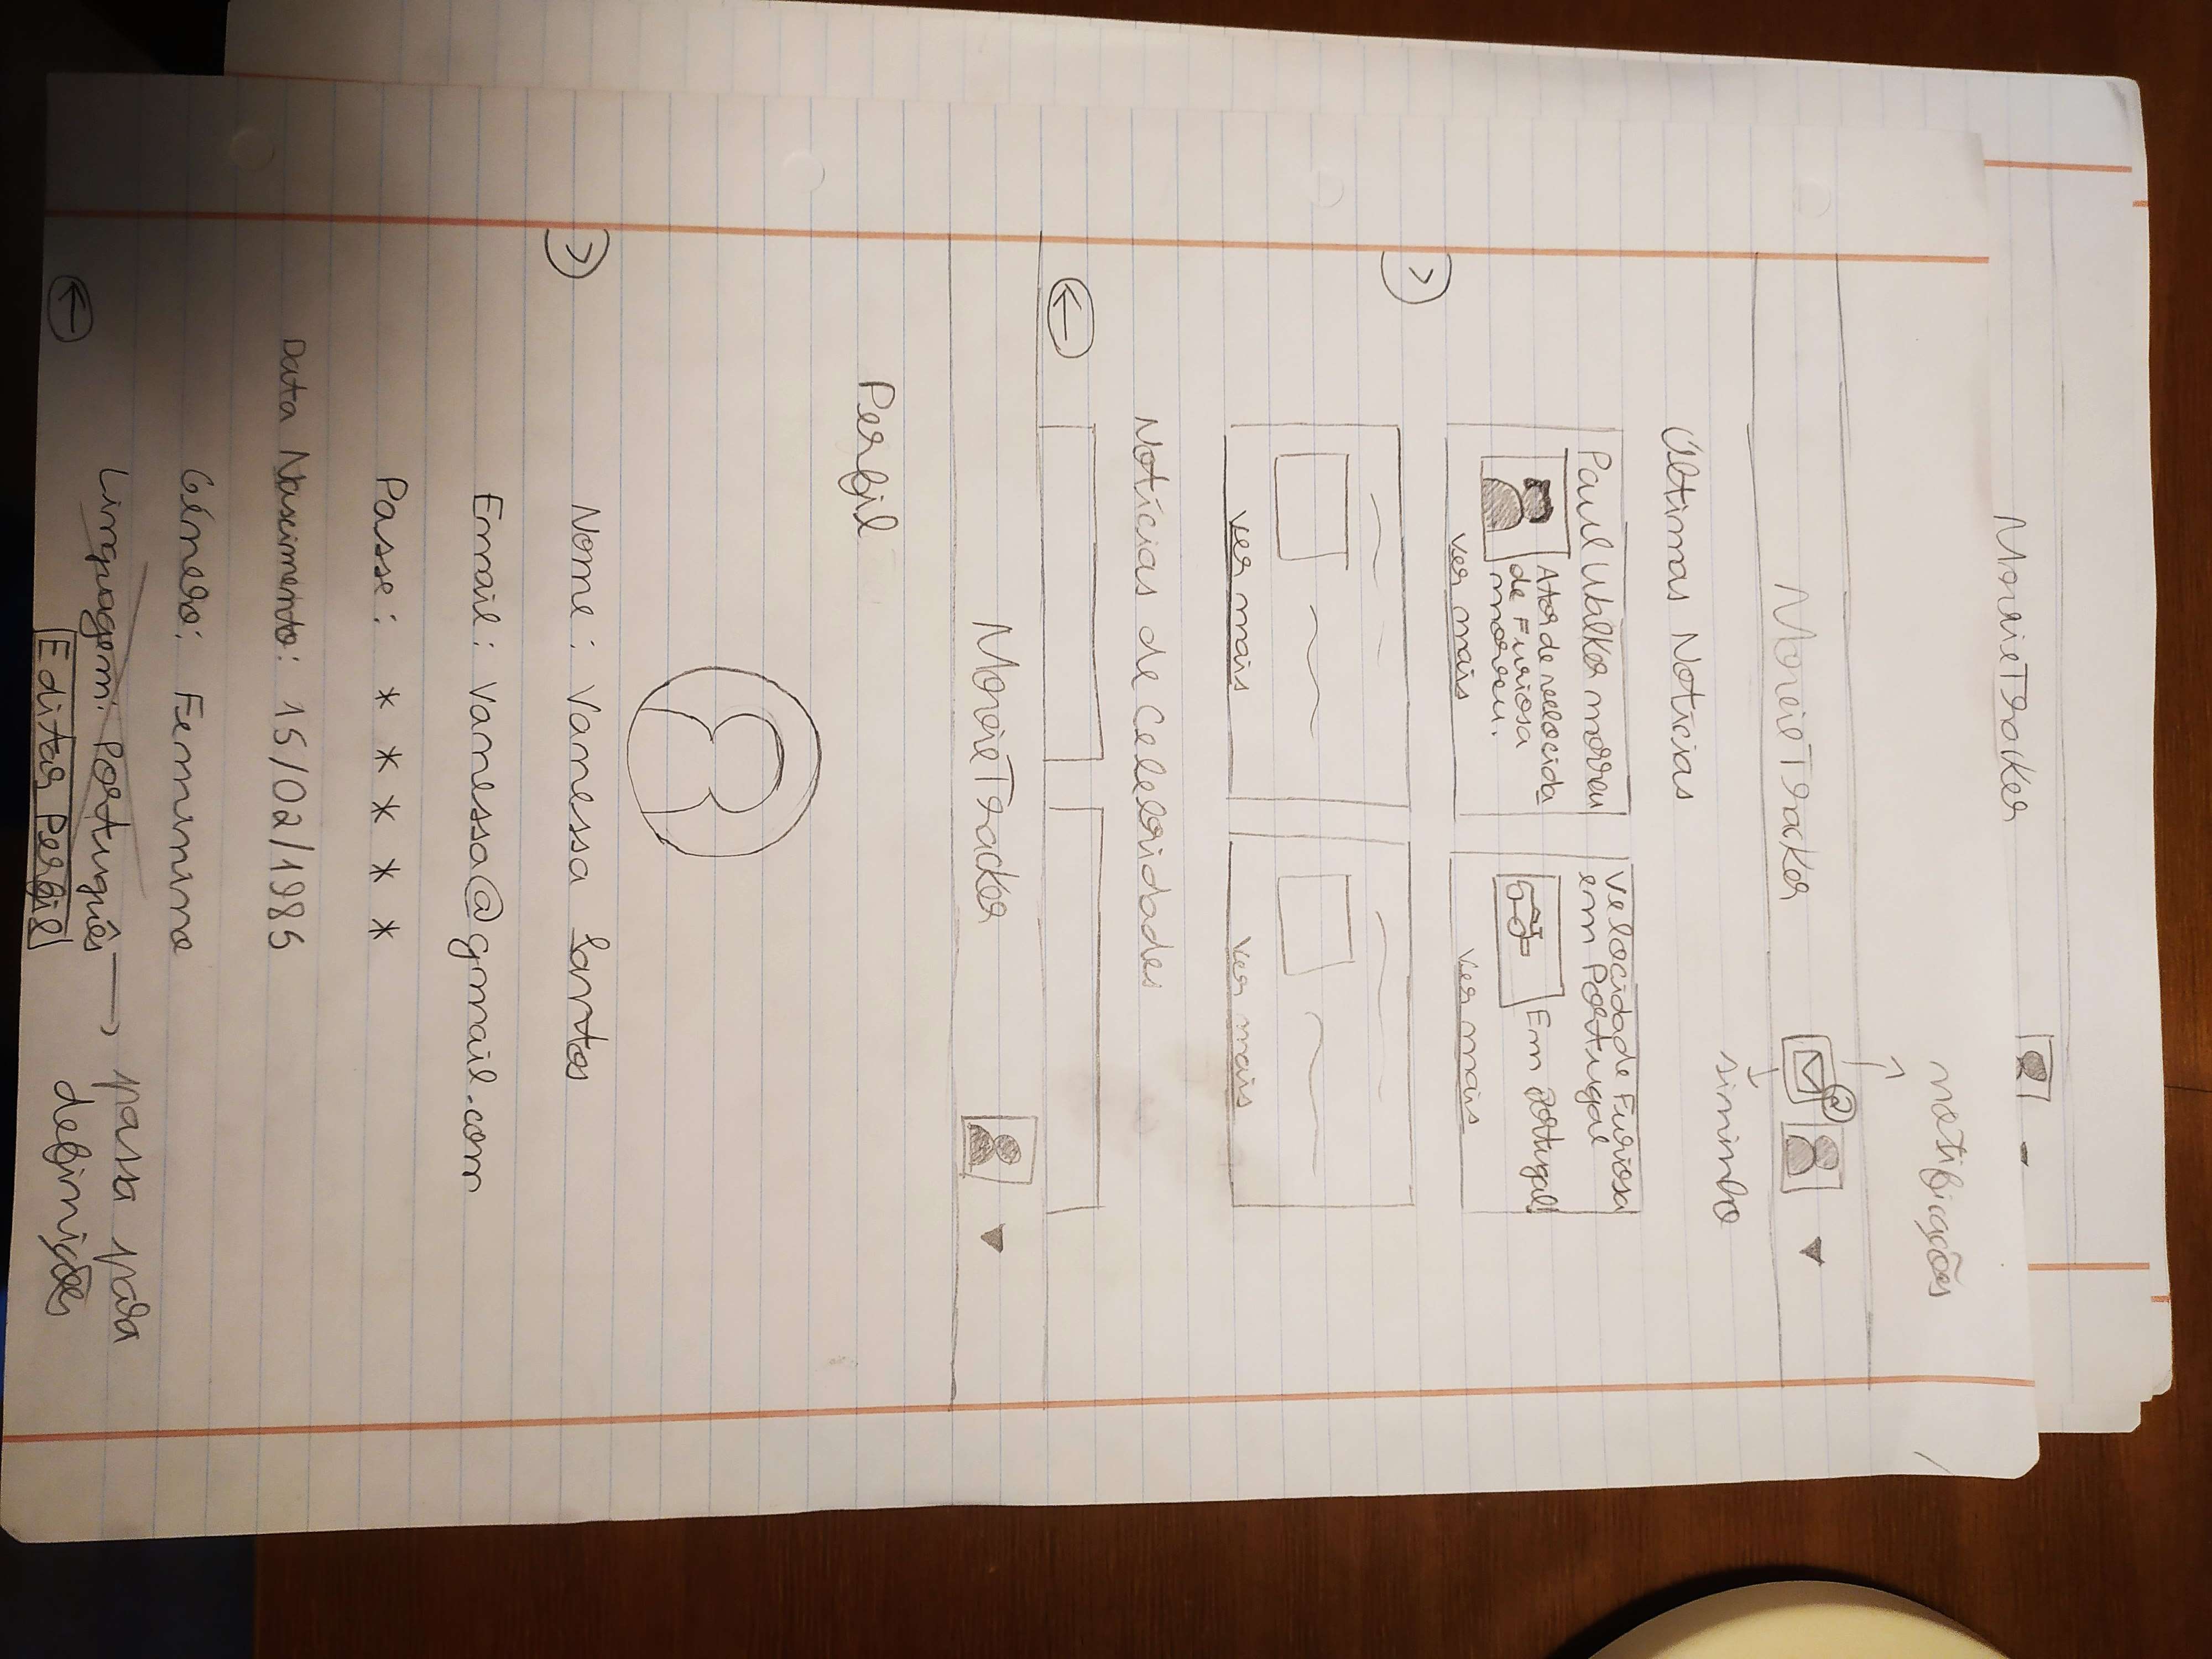 MovieTracker
notificações
MovieTracker
sininho
Últimas Notícias
Paul Walker morreu
Ator de velocida
de Furiosa
morreu.
ver mais
Velocidade Furiosa
em Portugal
Em Portugal!
Ver mais
>
ver mais
Ver mais
Notícias de Celebridades
←
MovieTracker
Perfil
>
Nome: Vanessa Santos
Email: Vanessa@gmail.com
Passe: * * * * *
Data Nascimento: 15/02/1985
Género: Feminino
Linguagem: Português → passa para
definições
←
Editar Perfil